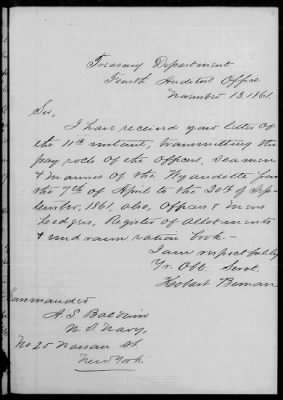 Treasury Department
Fourth Auditor's Office
November 13, 1861.
Sir,
I have received your letter of
the 11th instant, transmitting the
pay rolls of the Officers, Seamen
& Marines of the Wyandotte from
the 7th of April to the 20th of Sep-
tember, 1861, also, Officers & Mens
Ledgers, Register of Allotments
& undrawn ration book.-
I am respectfully
Yr. Obt. Servt.
Hobart Berrian
Commander
A. S. Baldwin
U. S. Navy,
No 25 Nassau St.
New York.